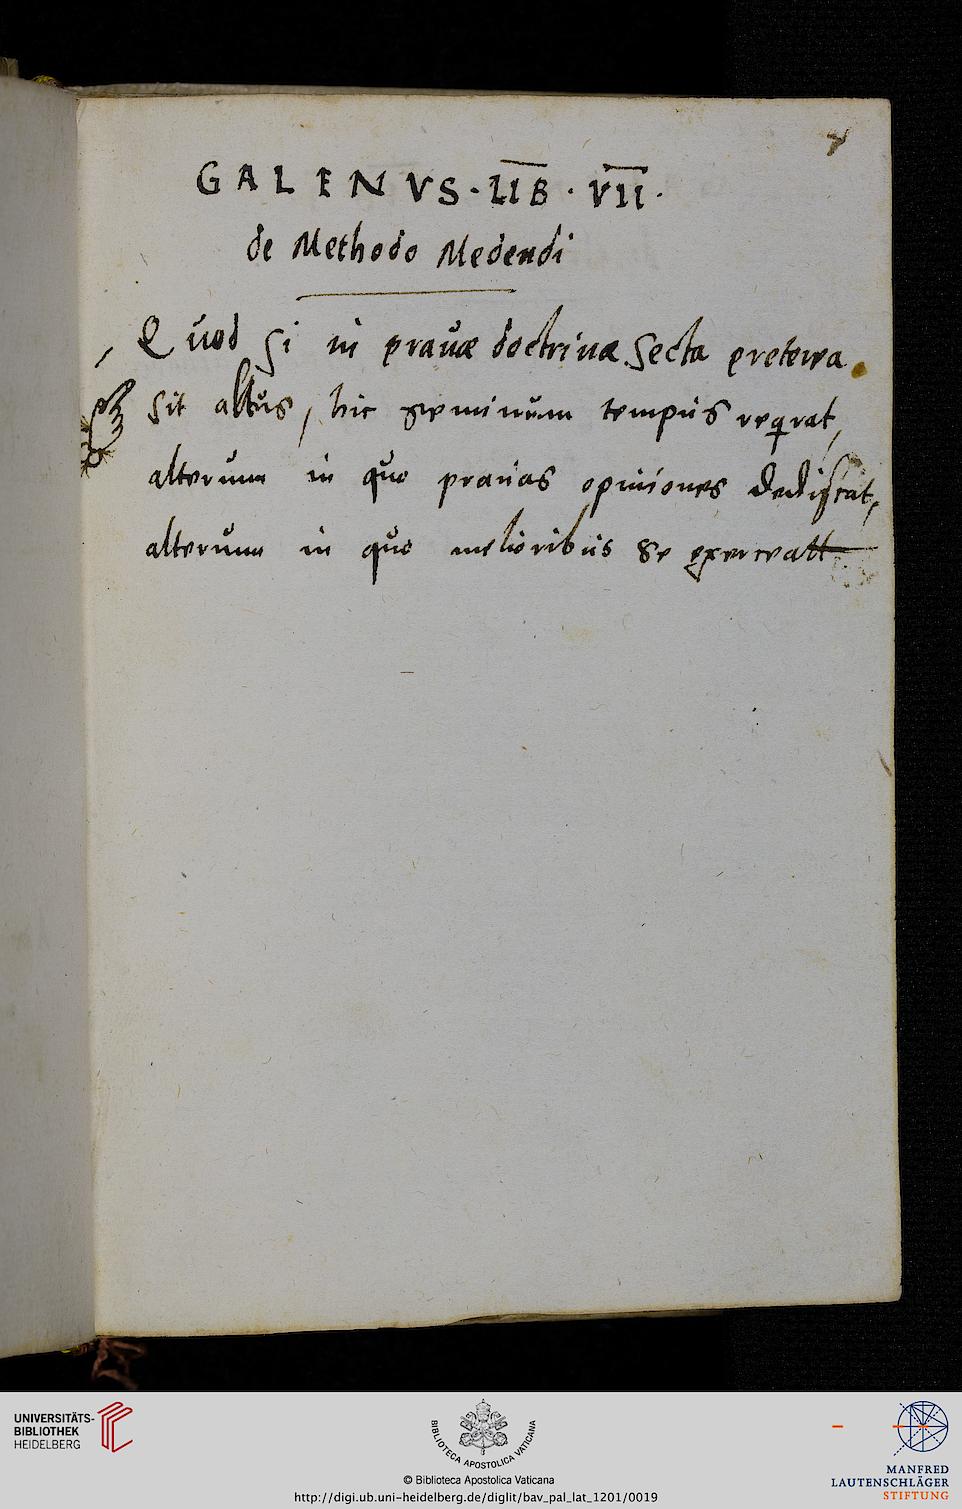 GALENVS · LIB · VII ·
de Methodo Medendi
Quod si in prauæ doctrinæ secta preterea
sit altus, hic geminum tempus reqrat,
alterum in quo prauas opiniones dediscat,
alterum in quo melioribus se exerceatt
UNIVERSITÄTS-
BIBLIOTHEK
HEIDELBERG
BIBLIOTECA APOSTOLICA VATICANA
© Biblioteca Apostolica Vaticana
http://digi.ub.uni-heidelberg.de/diglit/bav_pal_lat_1201/0019
MANFRED
LAUTENSCHLÄGER
STIFTUNG